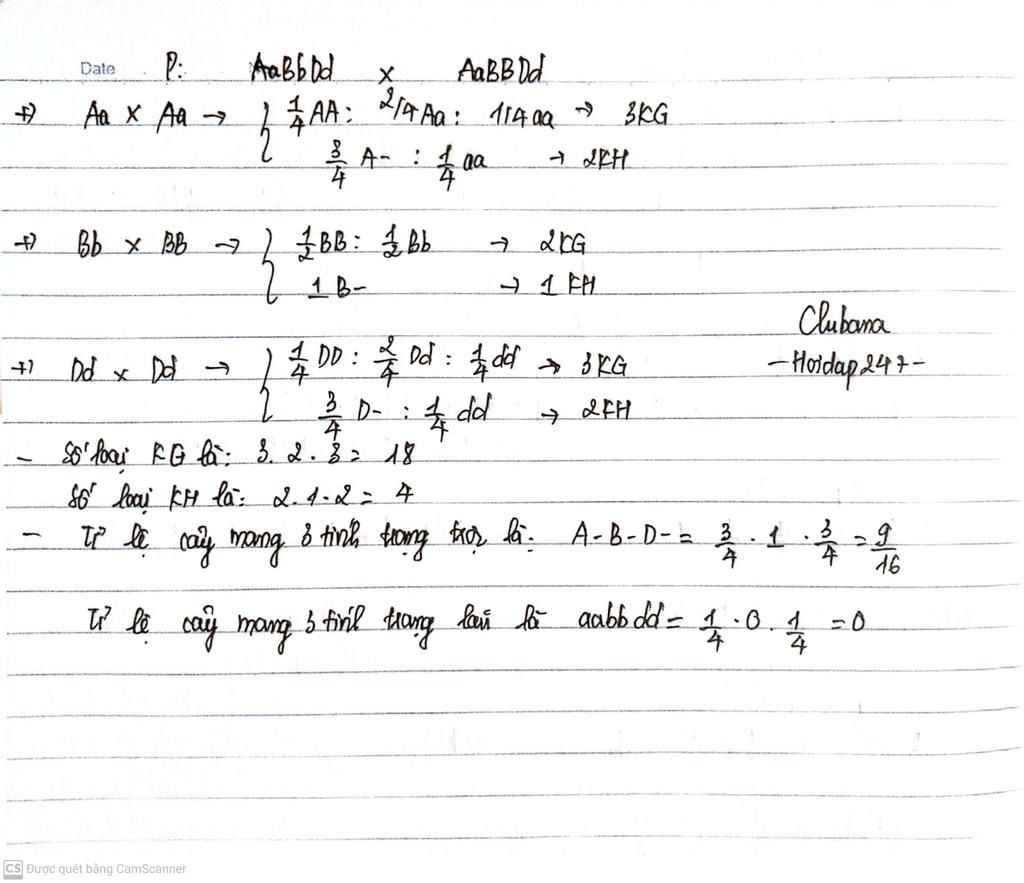 Date P: AaBbDd x AaBBDd
+) Aa x Aa → { 1/4 AA : 2/4 Aa : 1/4 aa → 3KG
3/4 A- : 1/4 aa → 2KH
+) Bb x BB → { 1/2 BB : 1/2 Bb → 2KG
1 B- → 1 KH
Clubana
+) Dd x Dd → { 1/4 DD : 2/4 Dd : 1/4 dd → 3KG
-Hoidap247-
3/4 D- : 1/4 dd → 2KH
- Số loại KG là: 3.2.3 = 18
Số loại KH là: 2.1.2 = 4
- Tỉ lệ cây mang 3 tính trạng trội là: A-B-D- = 3/4 . 1 . 3/4 = 9/16
Tỉ lệ cây mang 3 tính trạng lặn là aabbdd = 1/4 . 0 . 1/4 = 0
CS Được quét bằng CamScanner